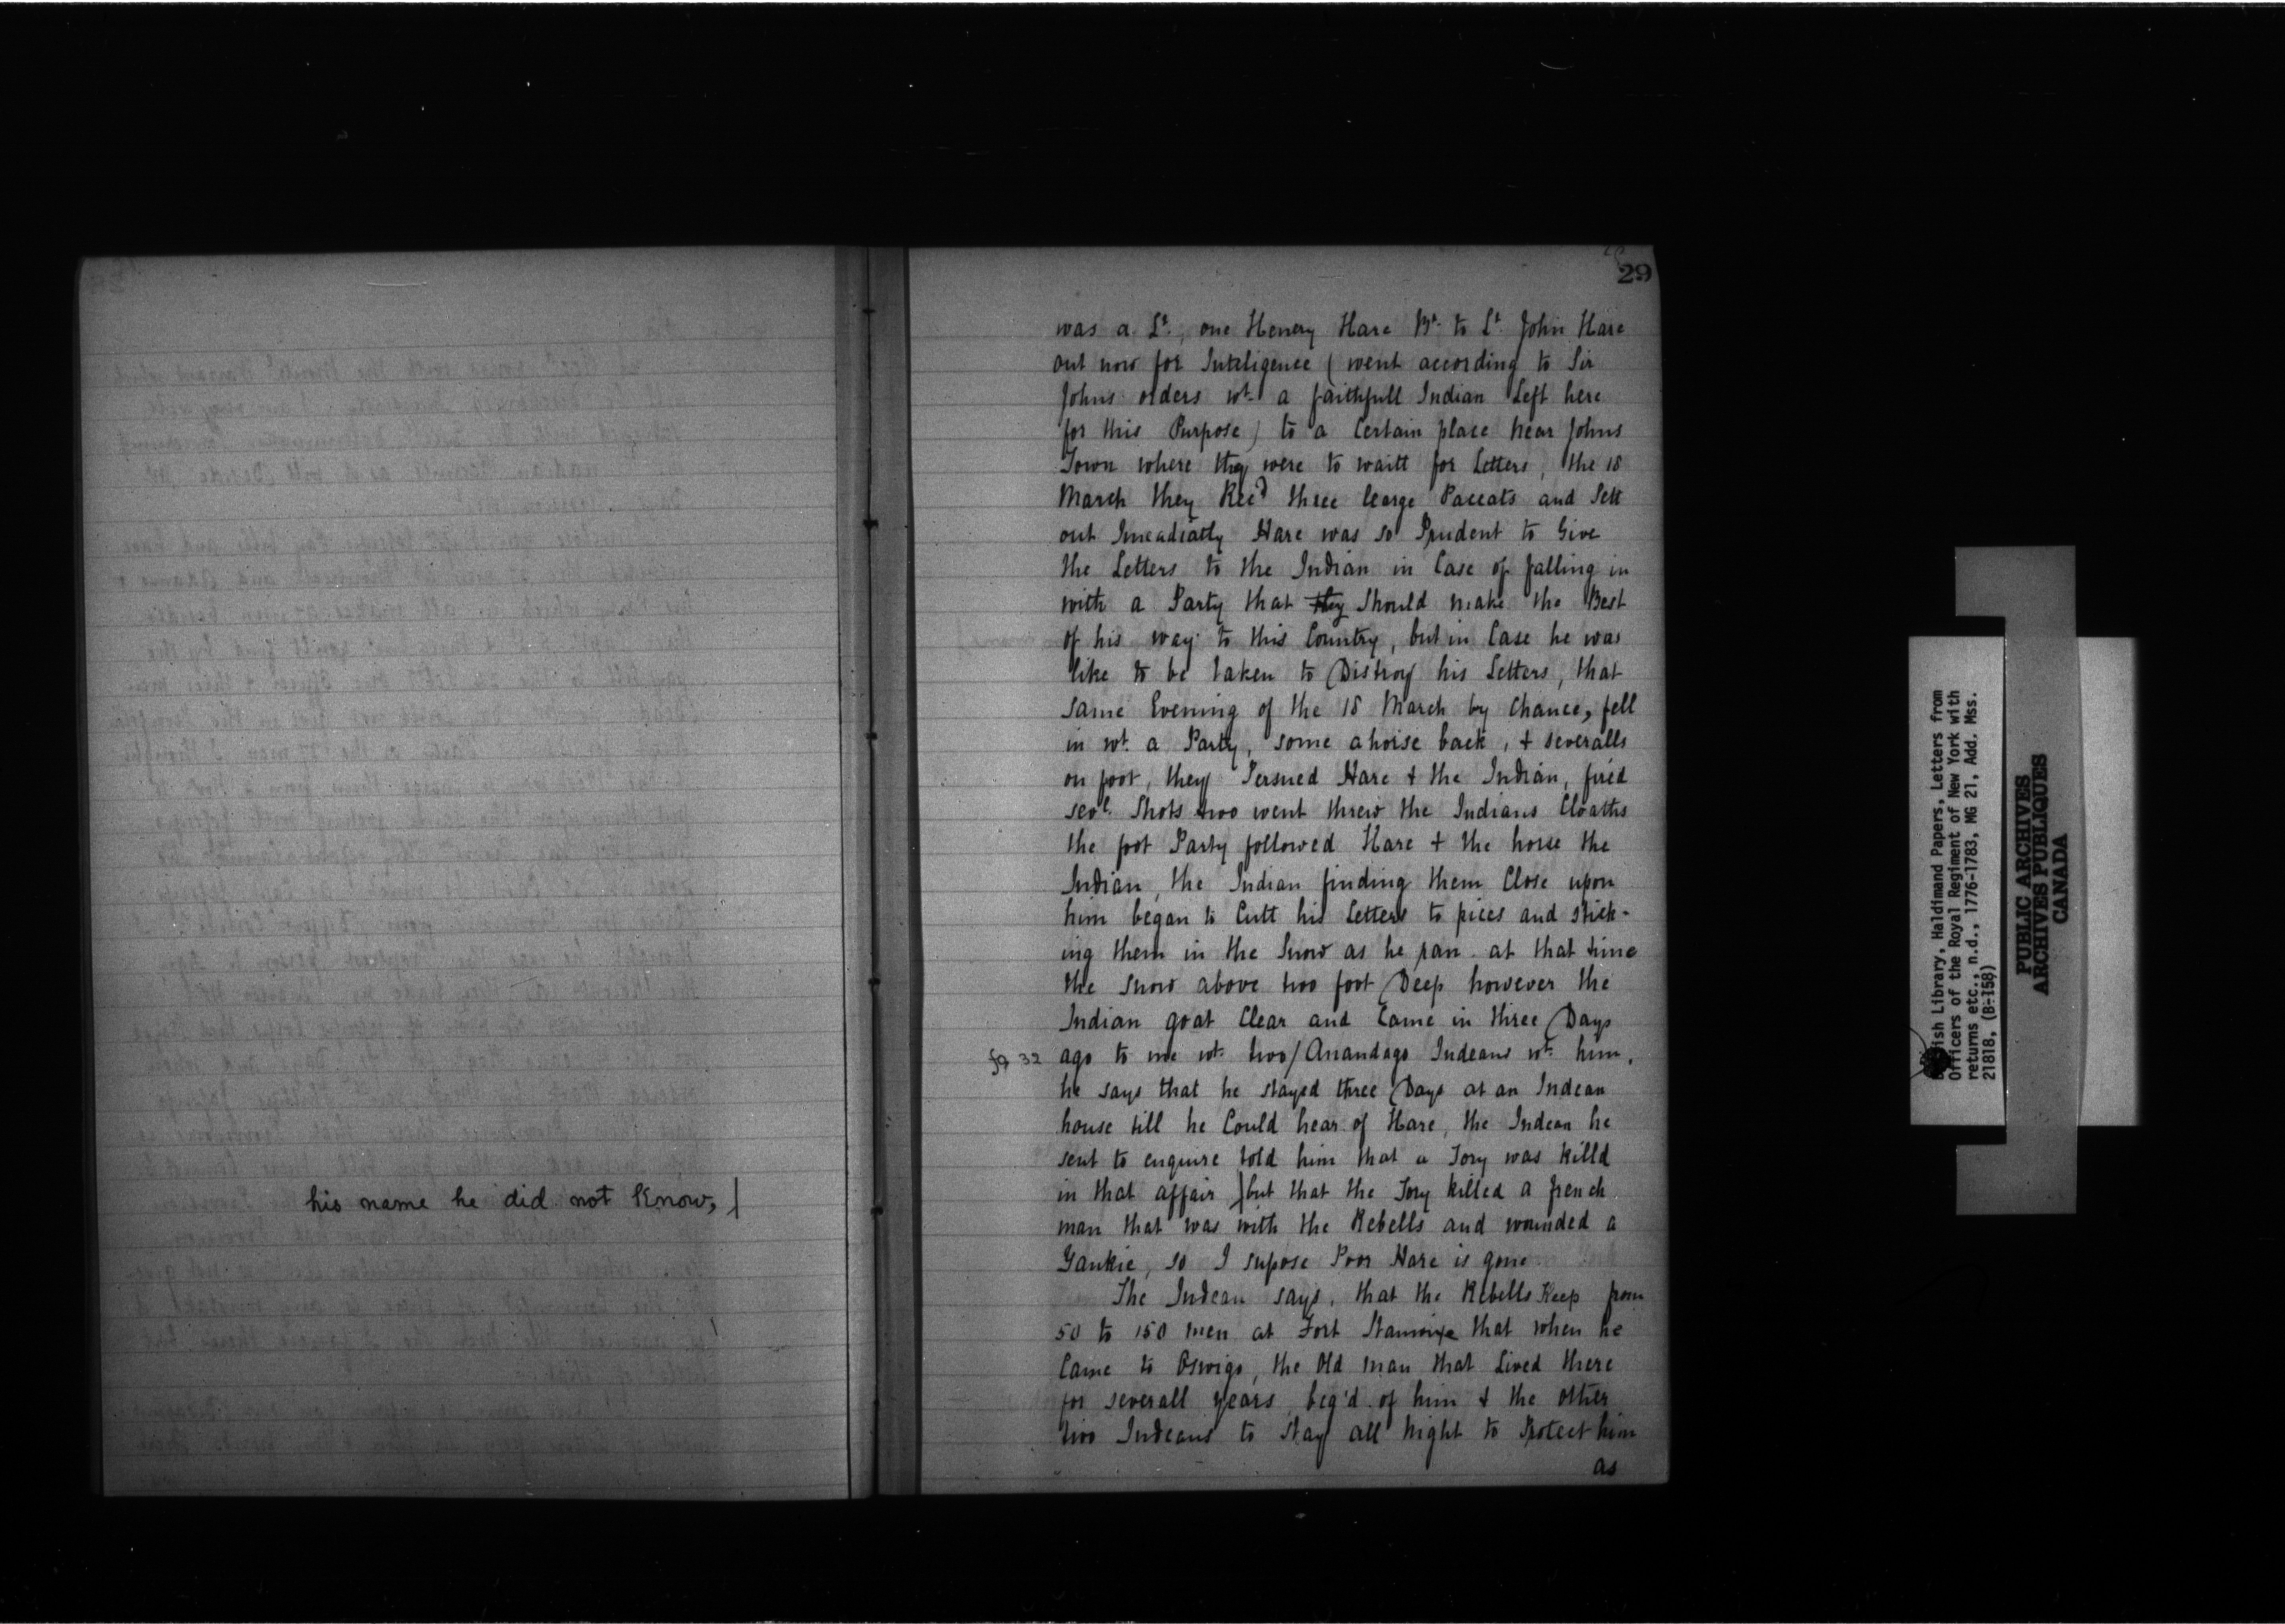 his name he did not Know,
29
was a Lt., one Henery Hare Br. to Lt. John Hare
out now for Inteligence ( went according to Sir
Johns orders wt. a faithfull Indian Left here
for this Purpose ) to a Certain place near Johns
Town where they were to waitt for Letters, the 18
March they Rec'd three learge Paccats and Sett
out Imeadiatly Hare was so Prudent to Give
the Letters to the Indian in Case of falling in
with a Party that they Should make the Best
of his way to this Country, but in Case he was
like to be taken to Distroy his Letters, that
same Evening of the 18 March by Chance, fell
in wt. a Party, some ahorse back, & severalls
on foot, they Persued Hare & the Indian, fired
sevl. Shots two went threw the Indians Cloaths
the foot Party followed Hare & the horse the
Indian, the Indian finding them Close upon
him began to Cutt his Letters to pices and stick-
ing them in the Snow as he ran at that time
the snow above two foot Deep however the
Indian goat Clear and Came in three Days
fo 32 ago to me wt. two/Anandago Indeans wt. him,
he says that he stayed three Days at an Indean
house till he Could hear of Hare, the Indean he
sent to enquire told him that a Tory was killd
in that affair ) but that the Tory killed a french
man that was with the Rebells and wounded a
Yankie, so I supose Poor Hare is gone
The Indean says, that the Rebells Keep from
50 to 150 men at Fort Stanwixe that when he
Came to Oswigo, the Old man that Lived there
for severall years beg'd of him & the other
two Indeans to stay all night to Protect him
as
British Library, Haldimand Papers, Letters from
Officers of the Royal Regiment of New York with
returns etc., n.d., 1776-1783, MG 21, Add. Mss.
21818, (B-158)
PUBLIC ARCHIVES
ARCHIVES PUBLIQUES
CANADA